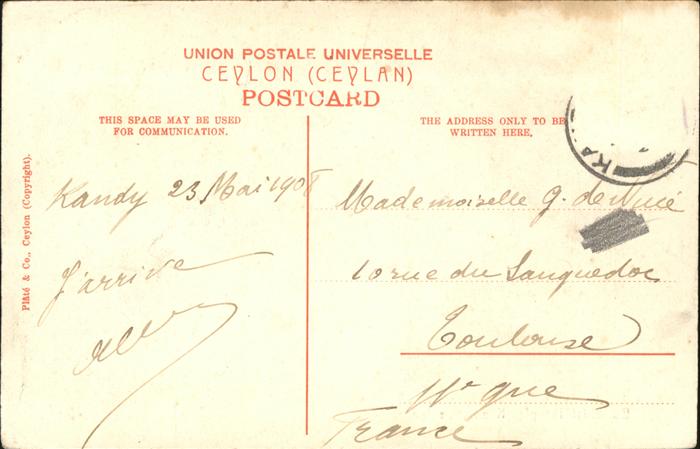 UNION POSTALE UNIVERSELLE
CEYLON (CEYLAN)
POSTCARD
THIS SPACE MAY BE USED
FOR COMMUNICATION.
THE ADDRESS ONLY TO BE
WRITTEN HERE.
Plâté & Co., Ceylon (Copyright).
KA
Kandy 23 Mai 1908
J'arrive
Mademoiselle G. de
10 rue du Languedoc
Toulouse
Hte Gne
France